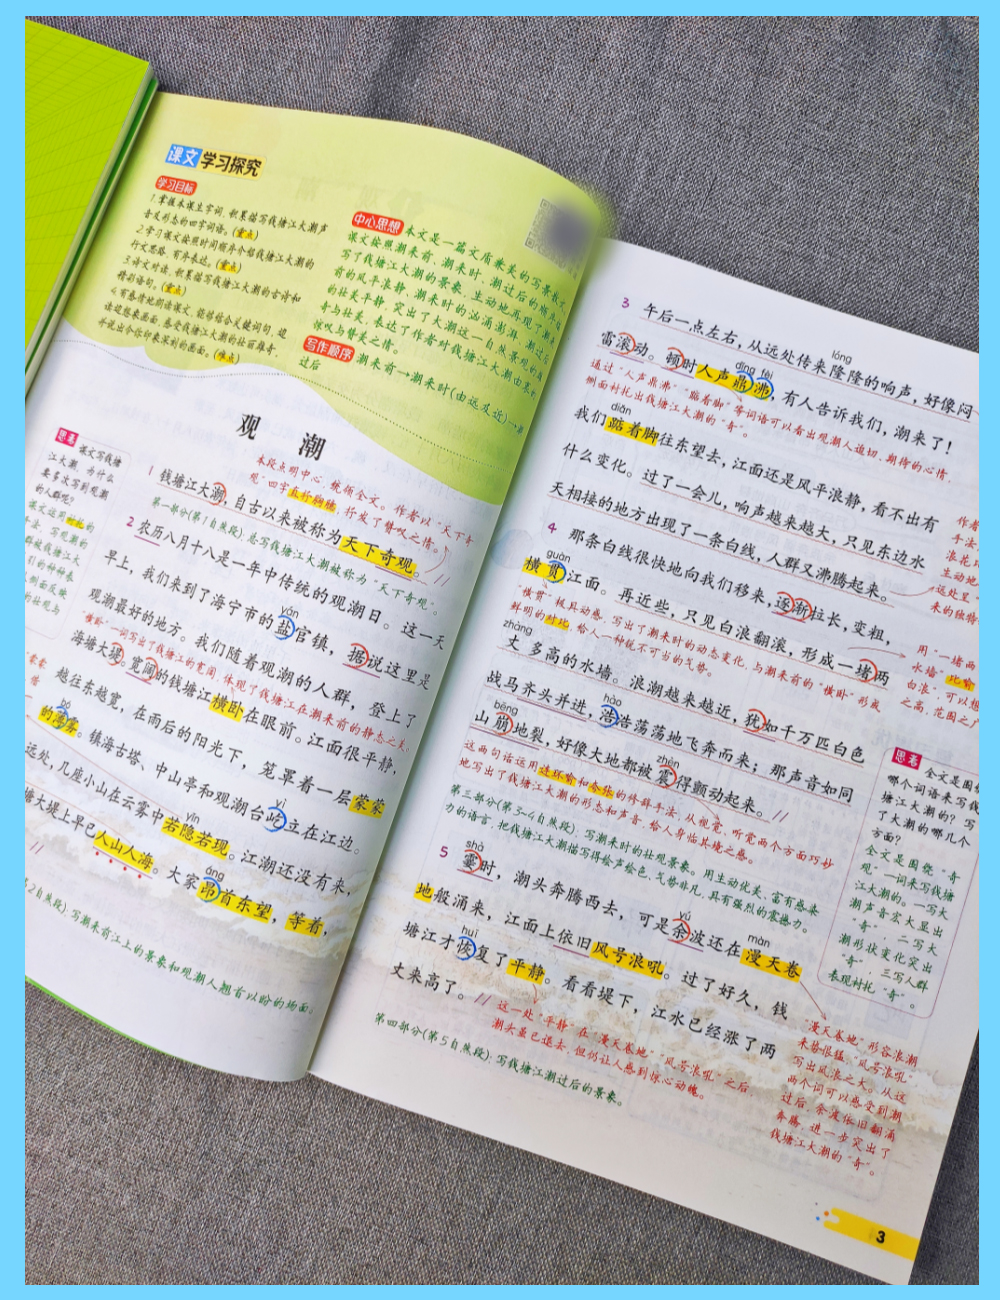 课文学习探究
学习目标
1.掌握本课生字词,积累描写钱塘江大潮声
音及形态的四字词语。(重点)
2.学习课文按照时间顺序介绍钱塘江大潮的
行文思路,有序表达。(重点)
3.诗文对读,积累描写钱塘江大潮的古诗和
精彩语句。(重点)
4.有感情地朗读课文,能够结合关键词句,边
读边想象画面,感受钱塘江大潮的壮丽雄奇,
并说出令你印象深刻的画面。(难点)
中心思想 本文是一篇文质兼美的写景散文。
课文按照潮来前、潮来时、潮过后的顺序,
写了钱塘江大潮的景象,生动地再现了潮来
前的风平浪静、潮来时的汹涌澎湃、潮过后
的壮美平静,突出了大潮这一自然景观的雄
奇与壮美,表达了作者对钱塘江大潮由衷的
惊叹与赞美之情。
写作顺序 潮来前→潮来时(由远及近)→潮
过后
观 潮
本段点明中心,统领全文。作者以“天下奇
观”四字直抒胸臆,抒发了赞叹之情。
1 钱塘江大潮,自古以来被称为天下奇观。
第一部分(第1自然段):总写钱塘江大潮被称为“天下奇观”。
2 农历八月十八是一年中传统的观潮日。这一天
yán
早上,我们来到了海宁市的盐官镇,据说这里是
观潮最好的地方。我们随着观潮的人群,登上了
“横卧”一词写出了钱塘江的宽阔,体现了钱塘江在潮来前的静态之美。
海塘大堤。宽阔的钱塘江横卧在眼前。江面很平静,
越往东越宽,在雨后的阳光下,笼罩着一层蒙蒙
bó
的薄雾。镇海古塔、中山亭和观潮台屹立在江边。
yì
远处,几座小山在云雾中若隐若现。江潮还没有来,
yǐn
塘大堤上早已人山人海。大家昂首东望,等着,
áng
2自然段):写潮来前江上的景象和观潮人翘首以盼的场面。
思考
课文写钱塘
江大潮,为什么
要多次写到观潮
的人群呢?
3 午后一点左右,从远处传来隆隆的响声,好像闷
lóng
雷滚动。顿时人声鼎沸,有人告诉我们,潮来了!
dǐng fèi
通过“人声鼎沸”“踮着脚”等词语可以看出观潮人迫切、期待的心情,
侧面衬托出钱塘江大潮的“奇”。
diǎn
我们踮着脚往东望去,江面还是风平浪静,看不出有
什么变化。过了一会儿,响声越来越大,只见东边水
天相接的地方出现了一条白线,人群又沸腾起来。
4 那条白线很快地向我们移来,逐渐拉长,变粗,
guàn
横贯江面。再近些,只见白浪翻滚,形成一堵两
“横贯”极具动感,写出了潮来时的动态变化,与潮来前的“横卧”形成
鲜明的对比,给人一种锐不可当的气势。
zhàng
丈多高的水墙。浪潮越来越近,犹如千万匹白色
战马齐头并进,浩浩荡荡地飞奔而来;那声音如同
hào
bēng
山崩地裂,好像大地都被震得颤动起来。
zhèn
这两句话运用连环喻和夸张的修辞手法,从视觉、听觉两个方面巧妙
地写出了钱塘江大潮的形态和声音,给人身临其境之感。
第三部分(第3~4自然段):写潮来时的壮观景象。用生动优美、富有感染
力的语言,把钱塘江大潮描写得绘声绘色,气势非凡,具有强烈的震撼力。
shà
5 霎时,潮头奔腾西去,可是余波还在漫天卷
yú màn
地般涌来,江面上依旧风号浪吼。过了好久,钱
huī
塘江才恢复了平静。看看堤下,江水已经涨了两
丈来高了。
这一处“平静”在“漫天卷地”“风号浪吼”之后,
潮头虽已退去,但仍让人感到惊心动魄。
第四部分(第5自然段):写钱塘江潮过后的景象。
用“一堵两
水墙”比喻
白浪”,可以想
之高,范围之广
思考
全文是围
哪个词语来写钱
塘江大潮的?写
了大潮的哪几个
方面?
全文是围绕“奇
观”一词来写钱塘
江大潮的。一写大
潮声音宏大显出
“奇”,二写大
潮形状变化突出
“奇”,三写人群
表现衬托“奇”。
“漫天卷地”形容浪潮
来势很猛,“风号浪吼”
写出风浪之大。从这
两个词可以感受到潮
过后,余波依旧翻涌
奔腾,进一步突出了
钱塘江大潮的“奇”。
3